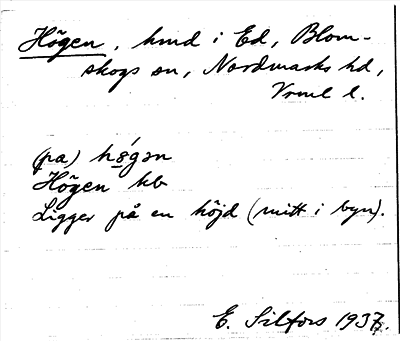 Högen, hmd i Ed, Blom-
skogs sn, Nordmarks hd,
Vrml l.
(pa) hö́gən
Högen kb
Ligger på en höjd (mitt i byn).
E. Silfors 1937.